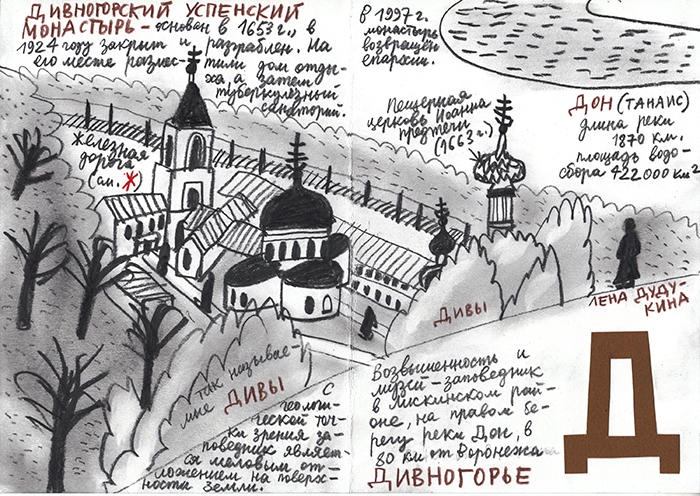 ДИВНОГОРСКИЙ УСПЕНСКИЙ
МОНАСТЫРЬ – основан в 1653 г., в
1924 году закрыт и разграблен. На
его месте размес-
тили дом отды-
ха, а затем
туберкулезный
санаторий.
В 1997 г.
монастырь
возвращён
епархии.
Пещерная
церковь Иоанна
предтечи
(1663 г.)
ДОН (ТАНАИС)
длина реки
1870 км.
площадь водо-
сбора 422000 км²
железная
дорога
(см. Ж)
ЛЕНА ДУДУ-
КИНА
ДИВЫ
так называе-
мые ДИВЫ
С
геологи-
ческой точ-
ки зрения за-
поведник являет-
ся меловым от-
ложением на поверх-
ности земли.
Возвышенность и
музей-заповедник
в Лискинском рай-
оне, на правом бе-
регу реки Дон, в
80 км от Воронежа
ДИВНОГОРЬЕ
Д